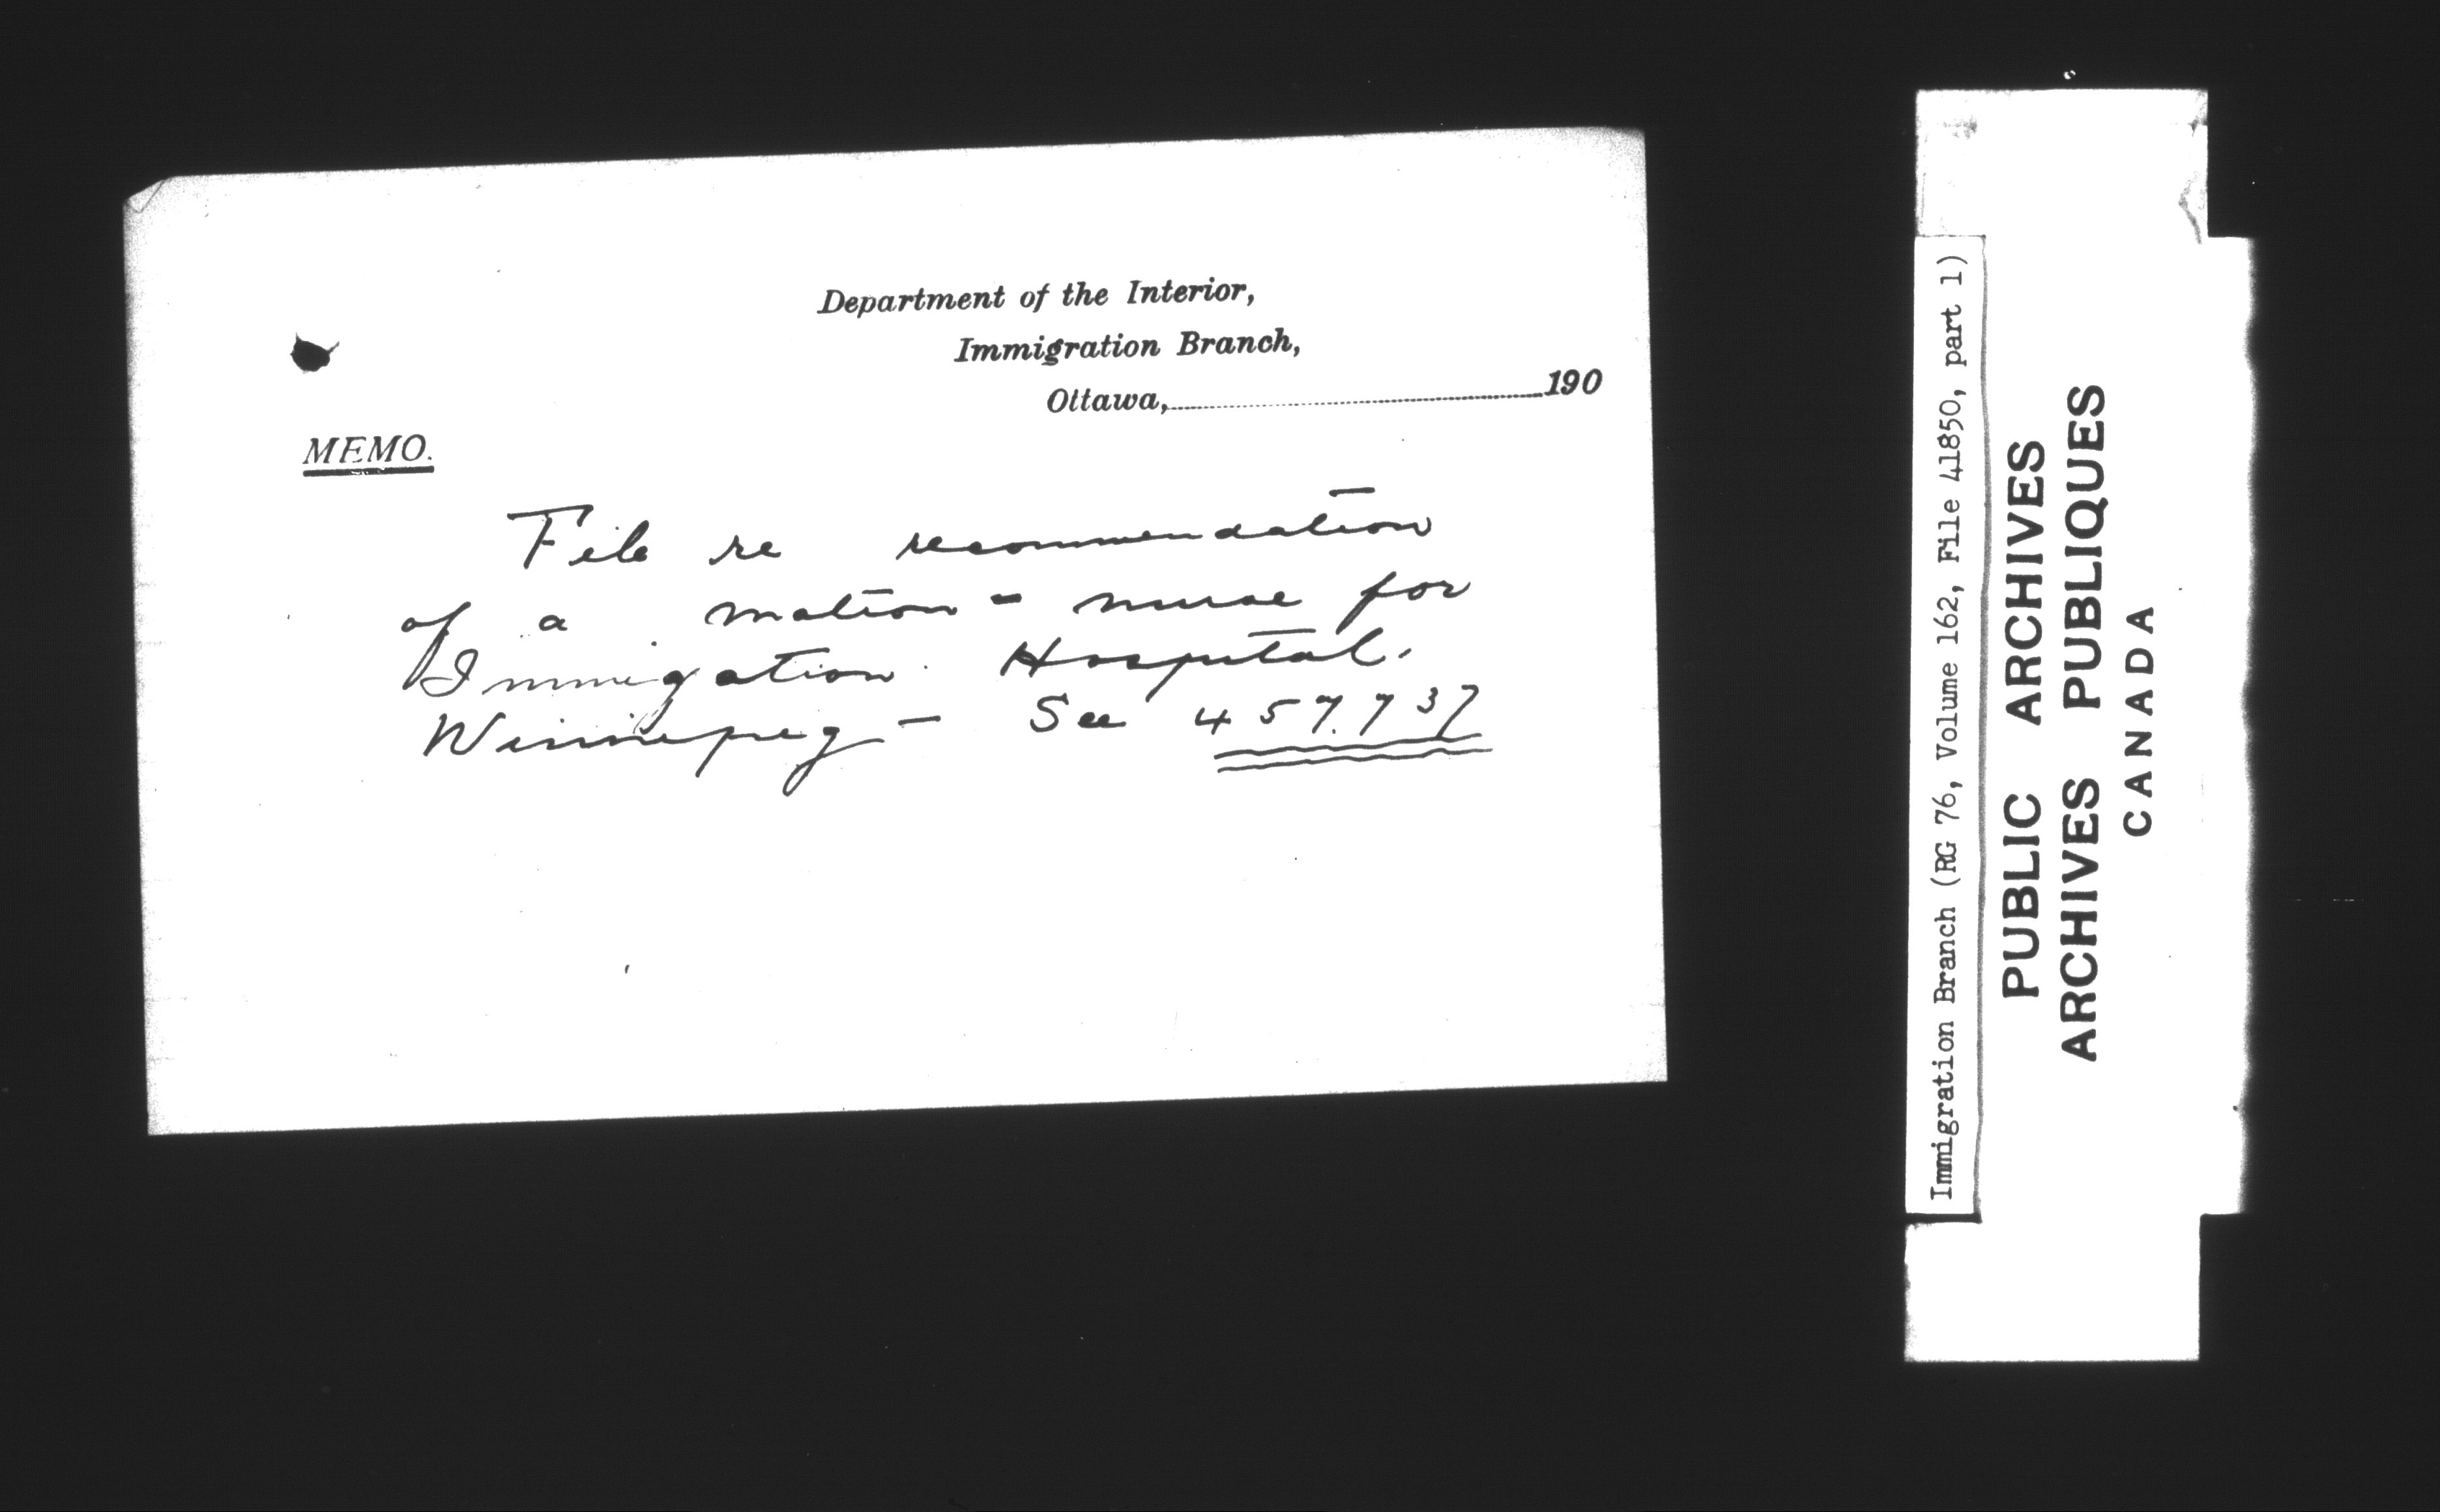 Department of the Interior,
Immigration Branch,
Ottawa, 190
MEMO.
File re recommendation
of a matron - nurse for
Immigration Hospital.
Winnipeg - See 457.737
Immigration Branch (RG 76, Volume 162, File 41850, part 1)
PUBLIC ARCHIVES
ARCHIVES PUBLIQUES
CANADA